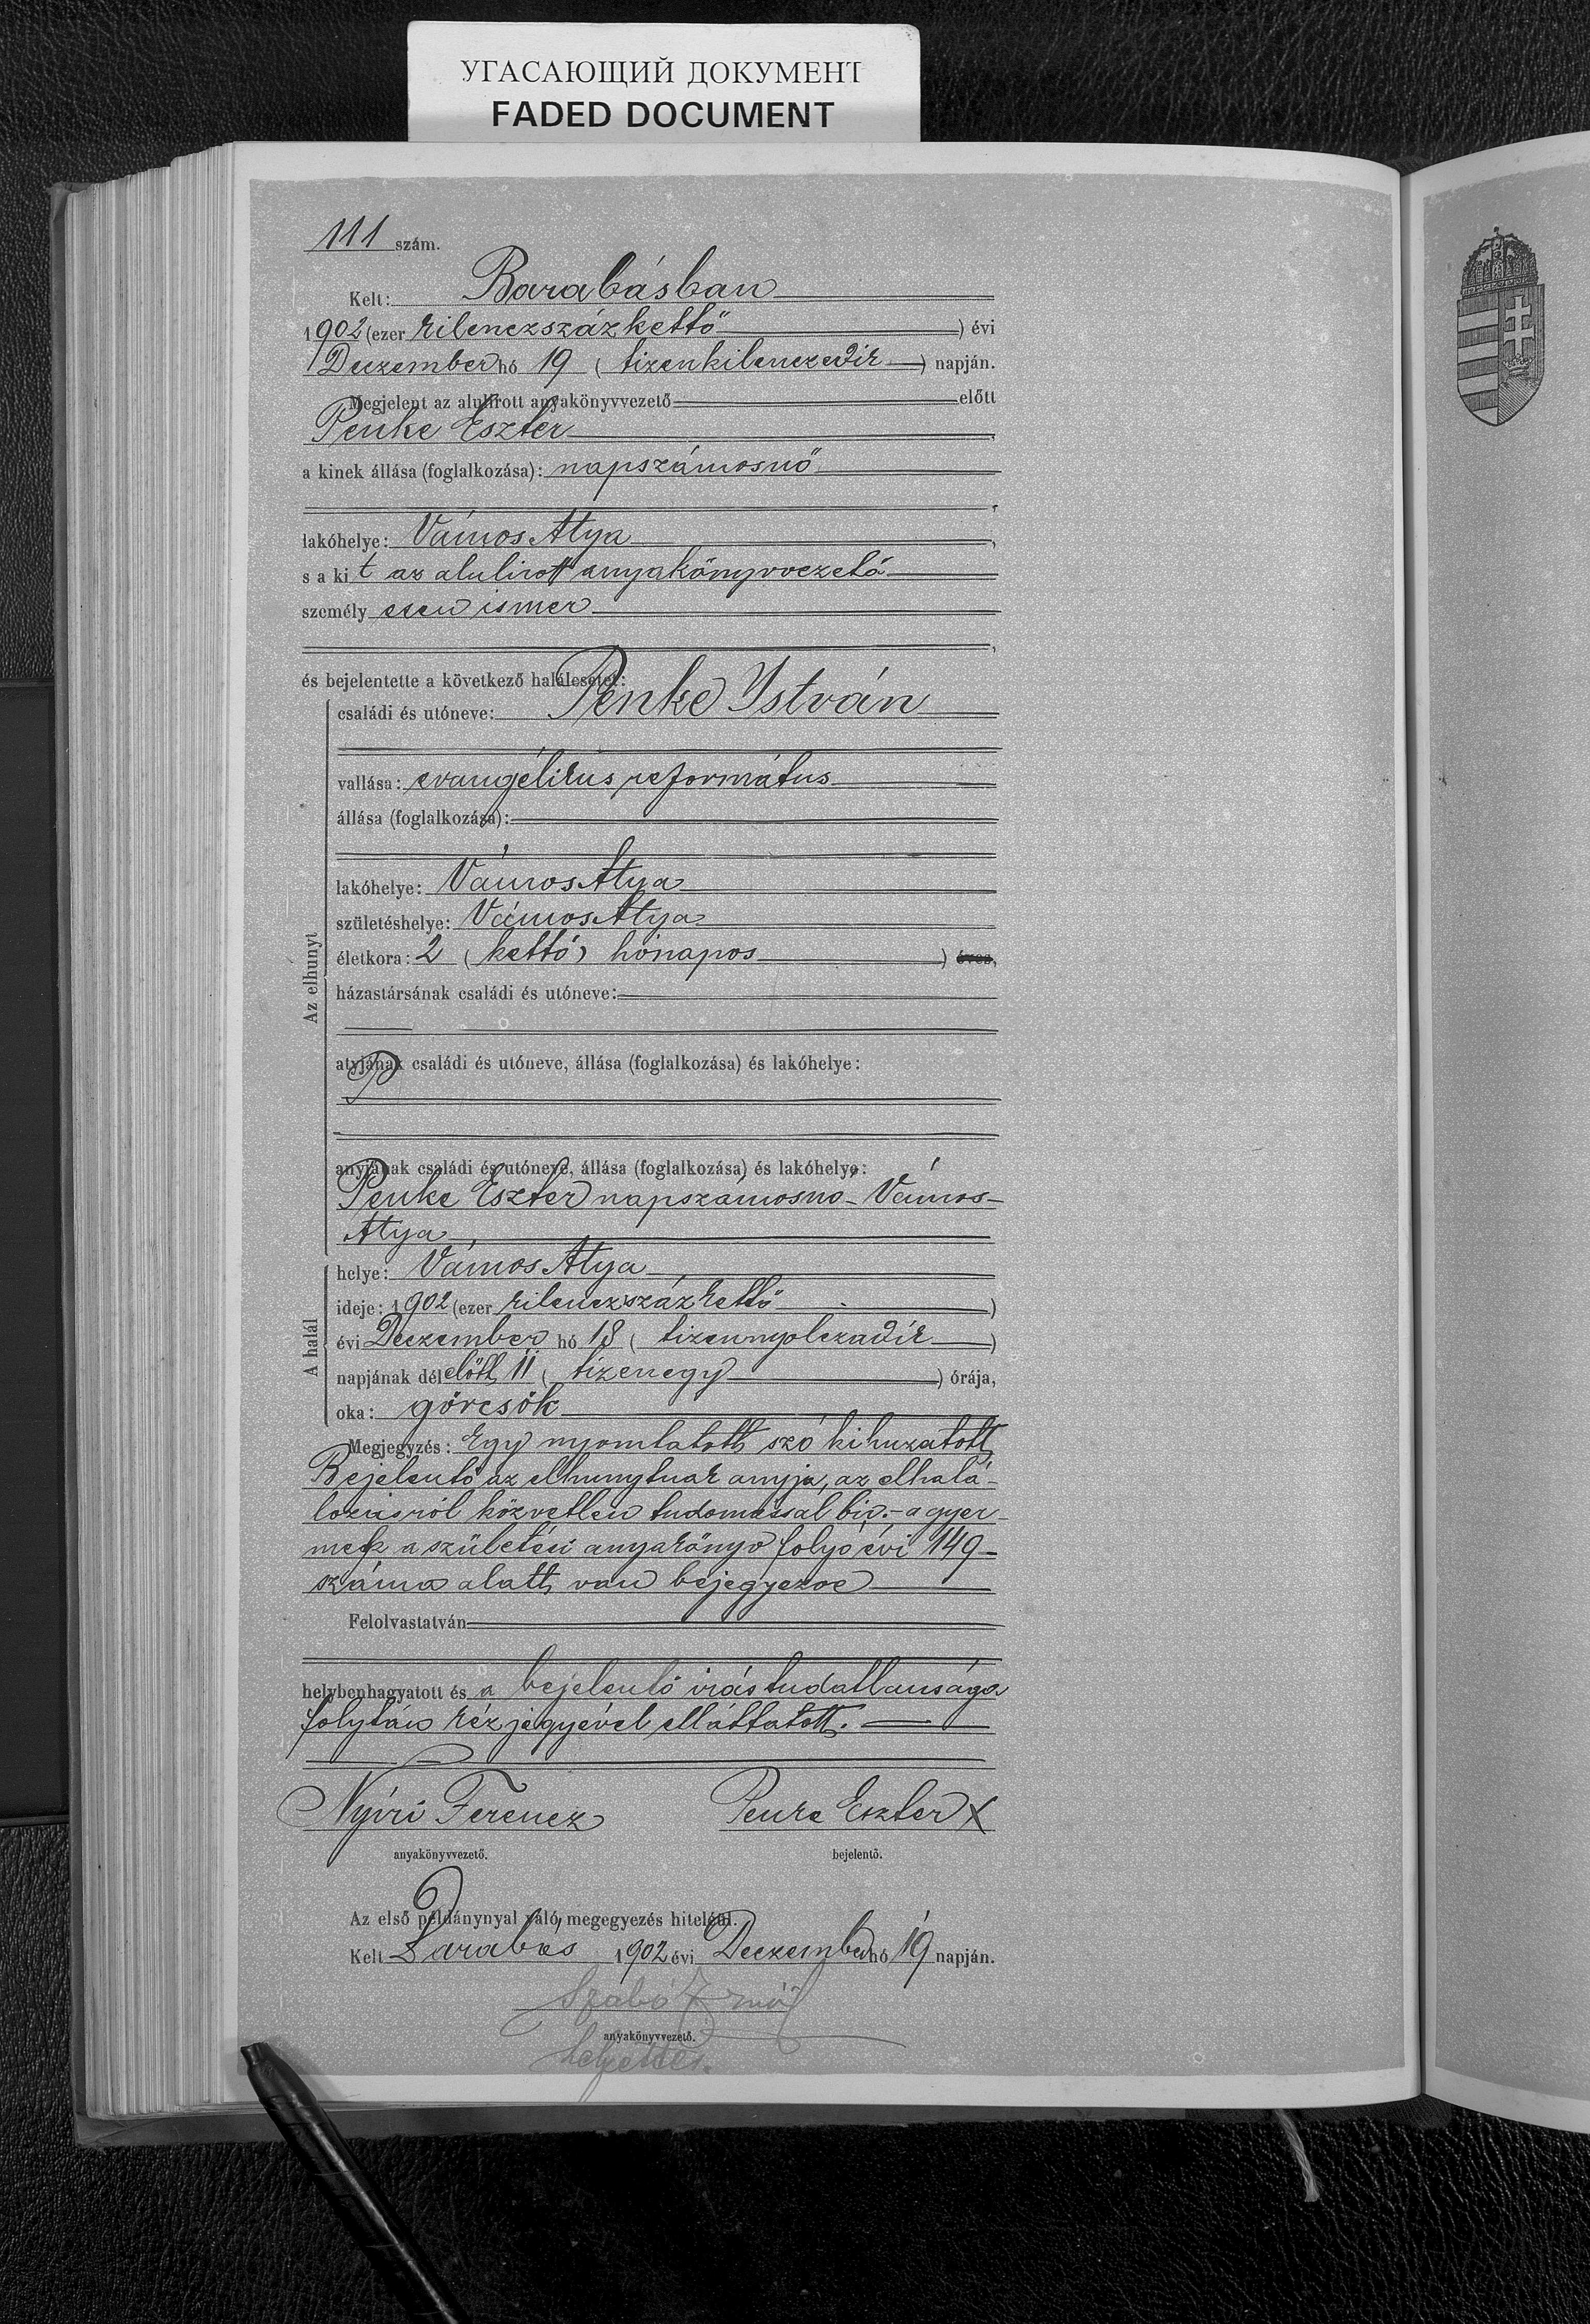 УГАСАЮЩИЙ ДОКУМЕНТ
FADED DOCUMENT
111 szám.
Kelt: Barabásban
1902 (ezer kilenczszázkettő ) évi
Deczember hó 19 ( tizenkilenczedik ) napján.
Megjelent az alulirott anyakönyvvezető előtt
Penke Eszter
a kinek állása (foglalkozása): napszámosnő
lakóhelye: Vámos Atya
s a kit az alulirott anyakönyvvezető
személyesen ismer
és bejelentette a következő halálesetet:
Az elhunyt
családi és utóneve: Penke István
vallása: evangélikus református
állása (foglalkozása):
lakóhelye: Vámos Atya
születéshelye: Vámos Atya
életkora: 2 ( kettő) hónapos ) éves,
házastársának családi és utóneve:
atyjának családi és utóneve, állása (foglalkozása) és lakóhelye:
P
anyjának családi és utóneve, állása (foglalkozása) és lakóhelye:
Penke Eszter napszámosnő - Vámos-
Atya
A halál
helye: Vámos Atya
ideje: 1902 (ezer kilenczszázkettő )
évi Deczember hó 18 ( tizennyolczadik )
napjának délelőtt 11 ( tizenegy ) órája,
oka: görcsök
Megjegyzés: Egy nyomtatott szó kihuzatott
Bejelentő az elhunytnak anyja, az elhalá-
lozásról közvetlen tudomással bir.- a gyer-
mek a születési anyakönyv folyó évi 149-
száma alatt van bejegyezve
Felolvastatván
helybenhagyatott és a bejelentő irástudatlansága
folytán kézjegyével elláttatott.
Nyiri Ferencz
Penke Eszter X
anyakönyvvezető.
bejelentő.
Az első példánynyal való megegyezés hiteléül.
Kelt Barabás 1902 évi Deczember hó 19 napján.
Szabó Ernő
anyakönyvvezető.
helyettes.